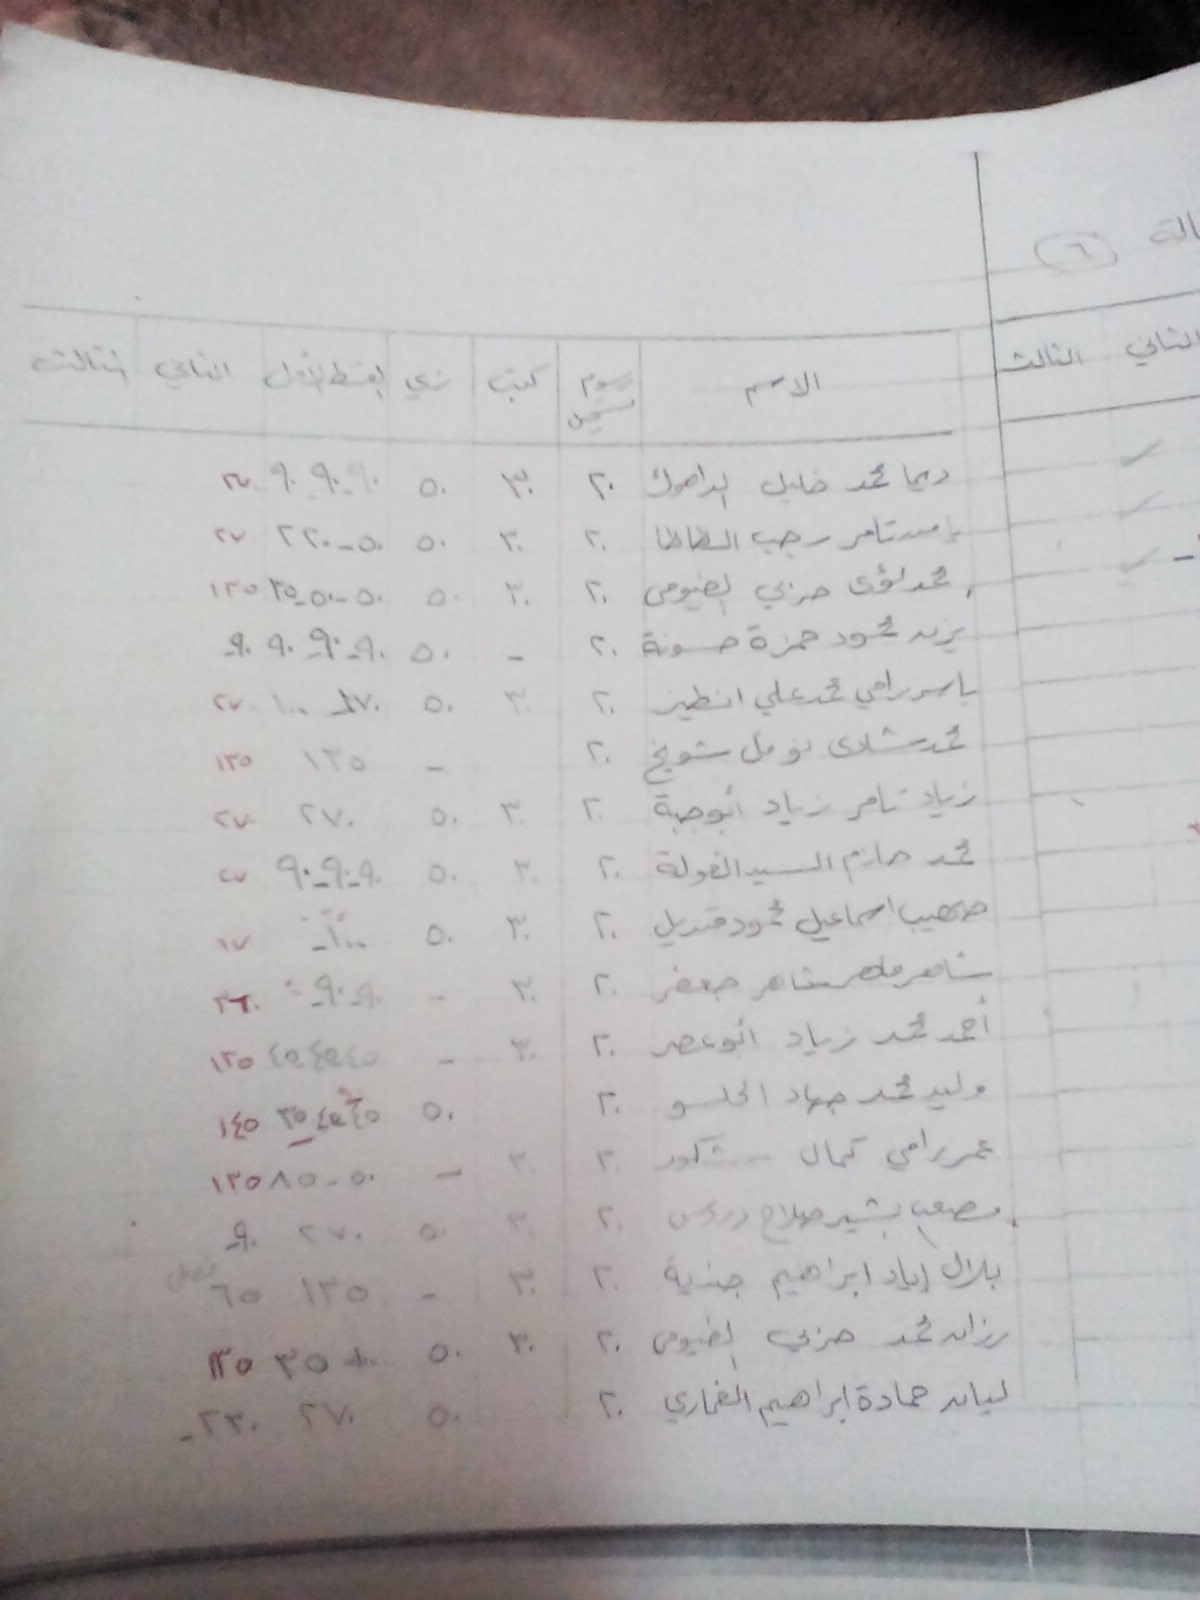 ٦
الثاني الثالث
الاسم رسوم تسجيل كتب زي القسط الأول الثاني الثالث
ديما محمد خليل ٢٠ ٣٠ ٥٠ ٩٠ ٩٠ ٩٠
تامر رجب ٢٠ ٣٠ ٥٠ ٥٠ - ٢٢٠ ٢٧٠
محمد لؤي حربي الفيومي ٢٠ ٣٠ ٥٠ ٥٠ - ٥٠ - ٣٥ ١٣٥
يزيد محمود حمزة حسونة ٢٠ - ٥٠ ٩٠ - ٩٠ ٩٠ ٩٠
ياسر رامي محمد علي ٢٠ ٣٠ ٥٠ ١٧٠ ١٠٠ ٢٧٠
محمد شادي نوفل شويخ ٢٠ - ١٣٥ ١٣٥
زياد تامر زياد أبوجبة ٢٠ ٣٠ ٥٠ ٢٧٠ ٢٧٠
محمد حازم السيد الغولة ٢٠ ٣٠ ٥٠ ٩٠ - ٩٠ - ٩٠ ٢٧٠
صهيب اسماعيل محمود قنديل ٢٠ ٣٠ ٥٠ ١٠٠
ماهر جعفر ٢٠ ٣٠ - ٩٠ - ٩٠
أحمد محمد زياد ابوعصر ٢٠ ٣٠ - ٤٥ ٤٥ ٤٥ ١٣٥
وليد محمد جهاد الحلو ٢٠ ٥٠ ٤٥ ٤٥ ٣٥ ١٤٥
عمر رامي كمال شكور ٢٠ ٣٠ - ٥٠ - ٨٥ ١٣٥
مصعب بشير صلاح ٢٠ ٣٠ ٥٠ ٢٧٠ ٩٠
بلال إياد ابراهيم جندية ٢٠ ٣٠ - ١٣٥ ٦٥
رزان محمد حربي الفيومي ٢٠ ٣٠ ٥٠ ١٠٠ ٣٥ ١٣٥
ليان حمادة ابراهيم الغماري ٢٠ ٥٠ ٢٧٠ ٢٣٠